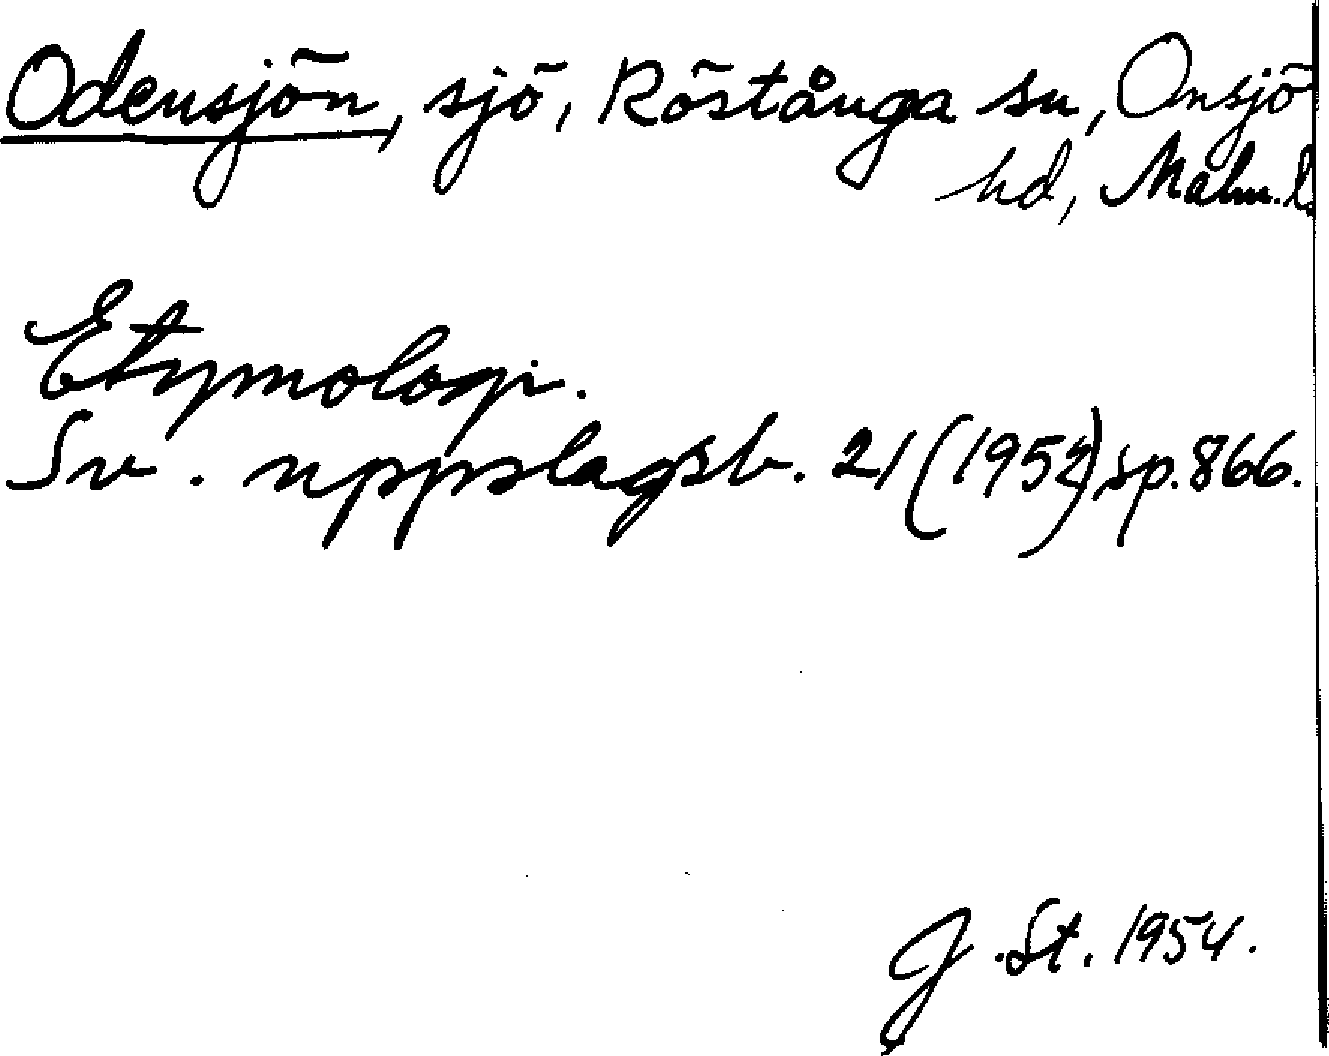 Odensjön, sjö, Röstånga sn, Onsjö
hd, Malm. l.
Etymologi.
Sv. uppslagsb. 21 (1952) sp. 866.
J. St. 1954.